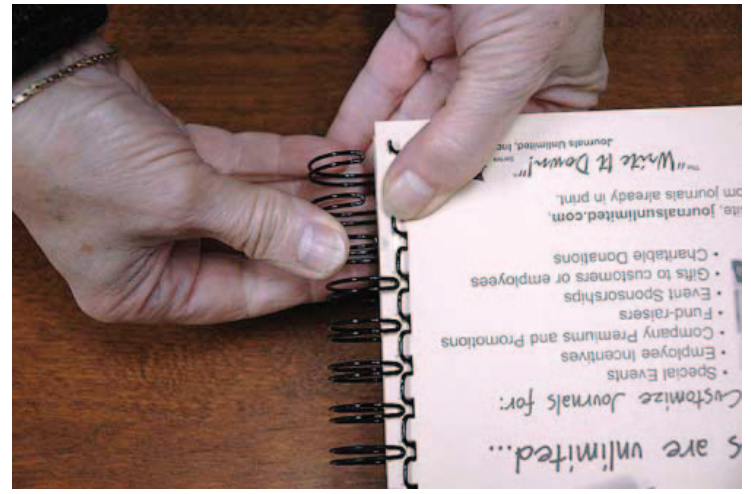 s are unlimited...
Customize Journals for:
• Special Events
• Employee Incentives
• Company Premiums and Promotions
• Fund-raisers
• Event Sponsorships
• Gifts to customers or employees
• Charitable Donations
site, journalsunlimited.com,
om journals already in print.
The "Write It Down!" Series
Journals Unlimited, Inc